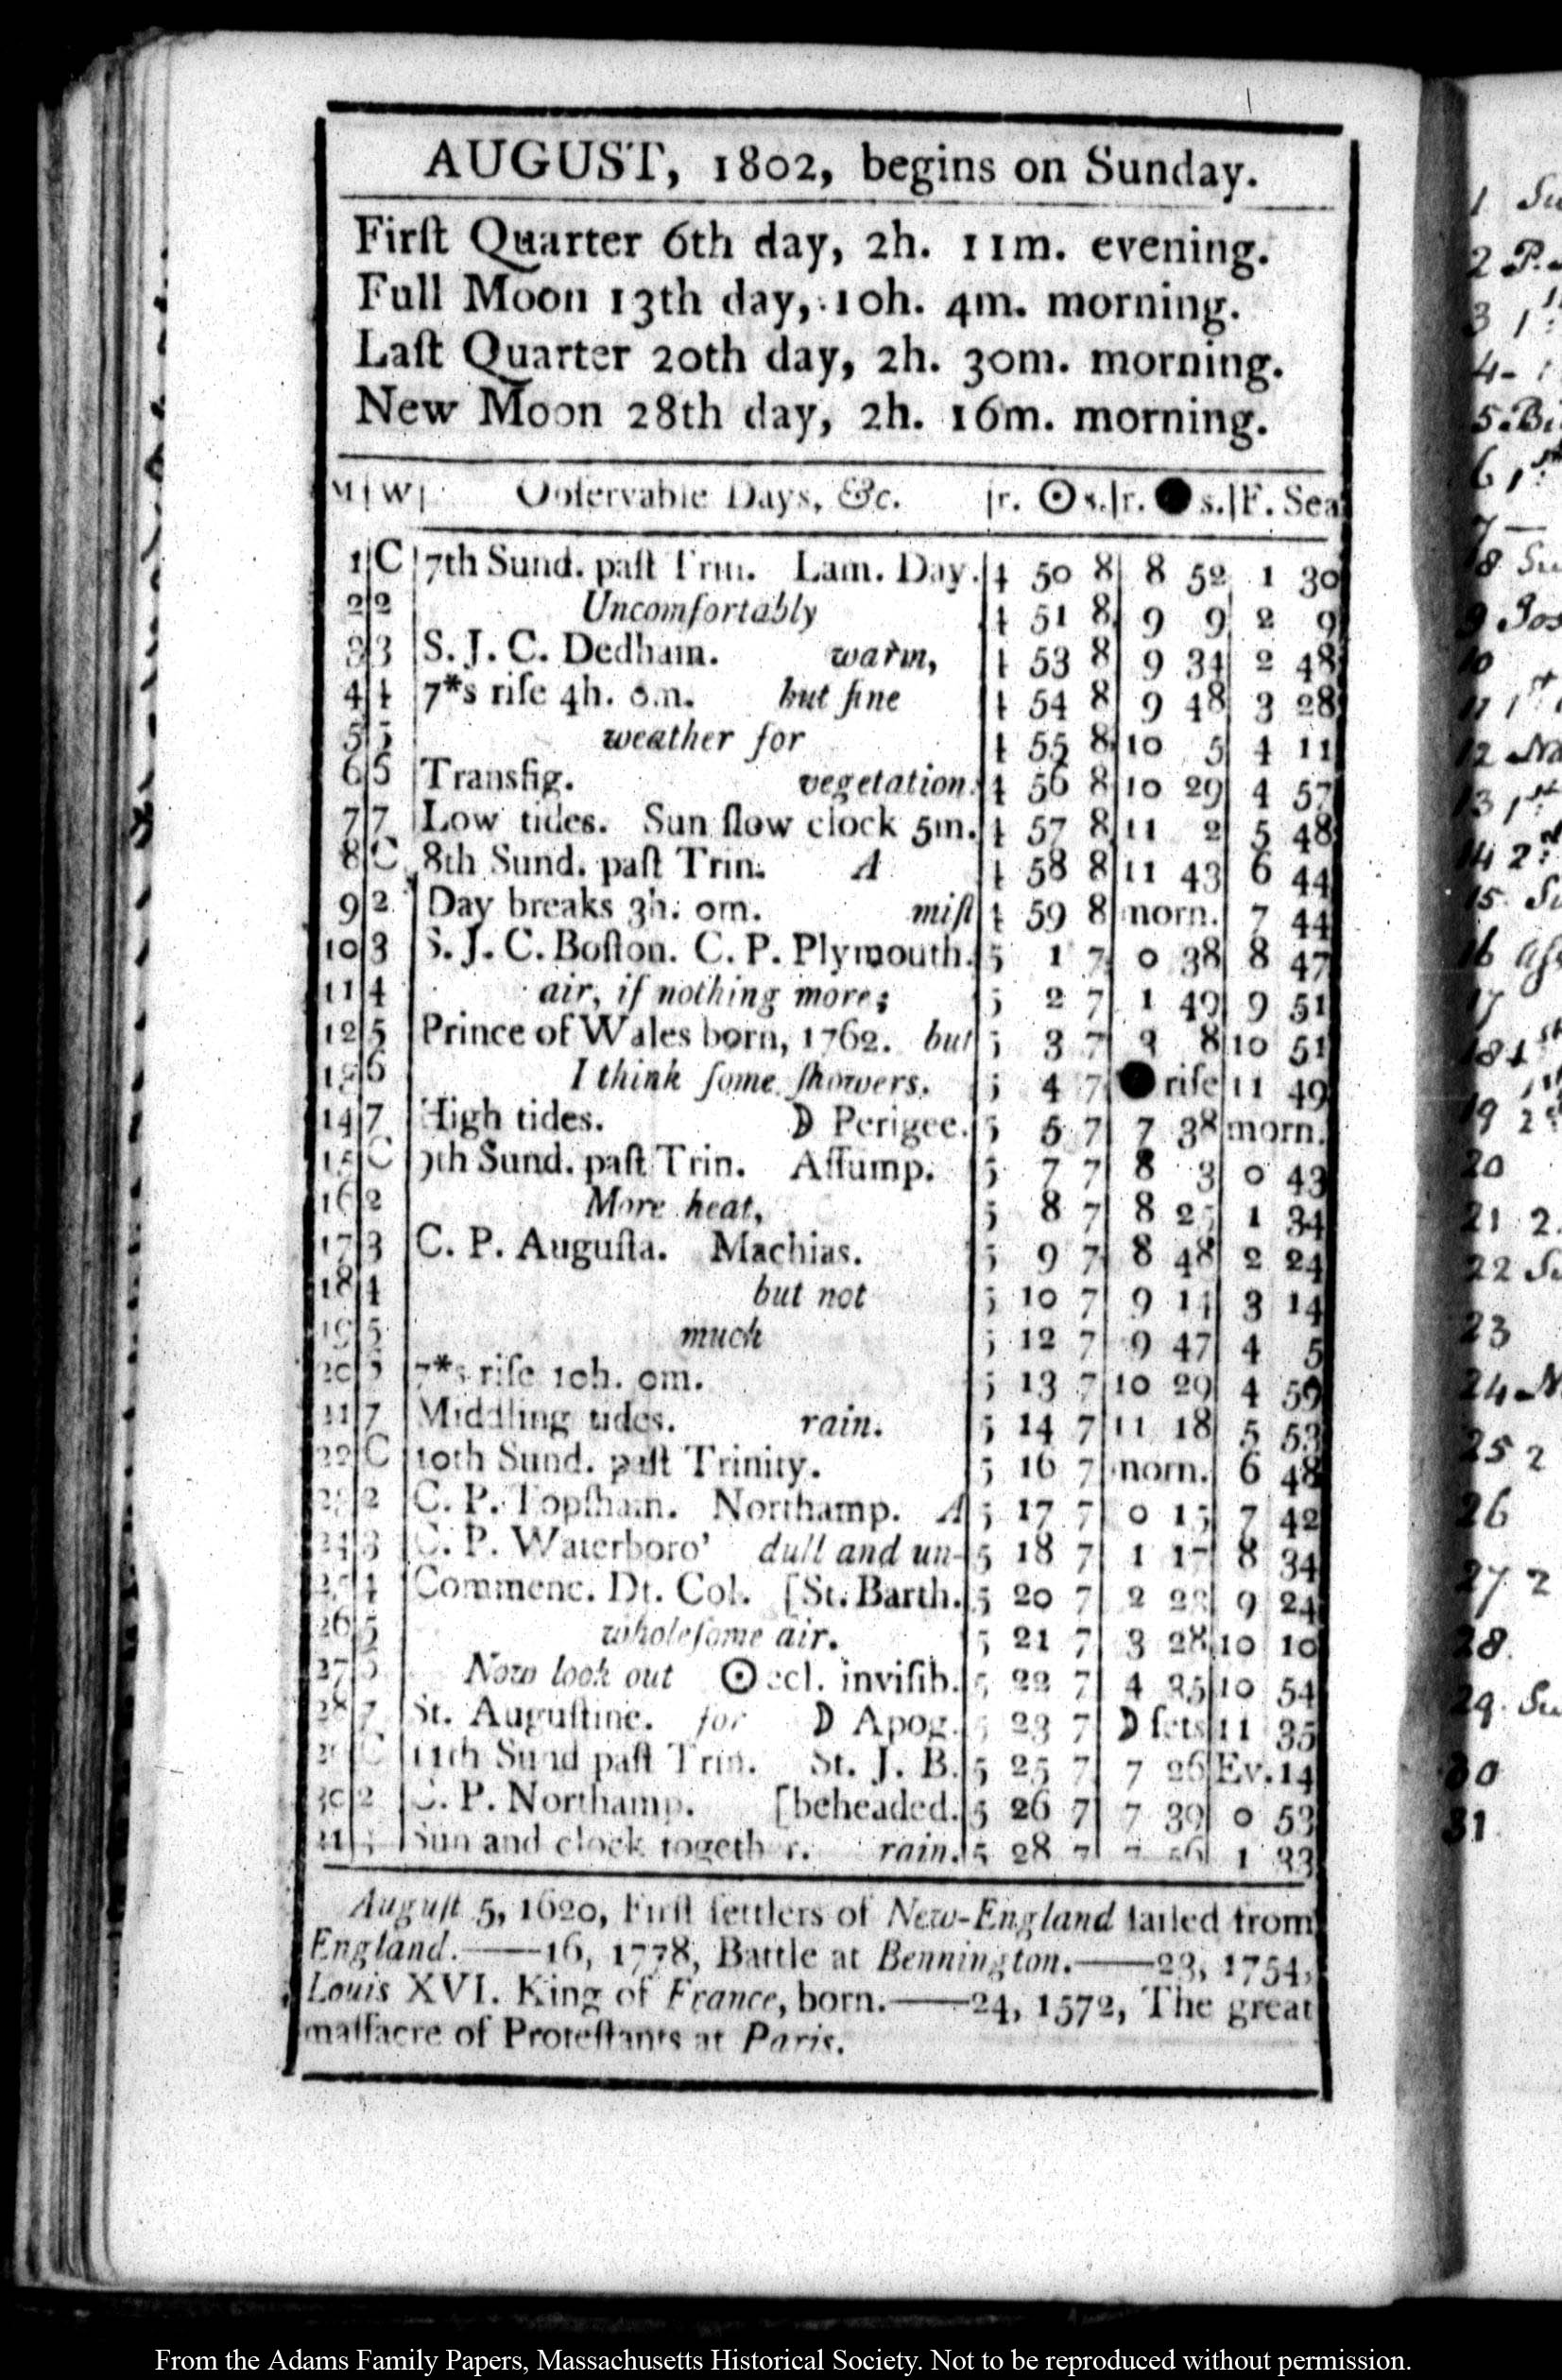 AUGUST, 1802, begins on Sunday.
Firſt Quarter 6th day, 2h. 11m. evening.
Full Moon 13th day, 10h. 4m. morning.
Laſt Quarter 20th day, 2h. 30m. morning.
New Moon 28th day, 2h. 16m. morning.
M|W| Obſervable Days, &c. |r. ☉ s.|r. ● s.|F. Sea
1|C|7th Sund. paſt Trin. Lam. Day.|4 50 8| 8 52| 1 30
2|2| Uncomfortably |4 51 8| 9 9| 2 9
3|3|S. J. C. Dedham. warm, |4 53 8| 9 34| 2 48
4|4|7*s riſe 4h. 0m. but fine |4 54 8| 9 48| 3 28
5|5| weather for |4 55 8|10 5| 4 11
6|6|Transfig. vegetation.|4 56 8|10 29| 4 57
7|7|Low tides. Sun ſlow clock 5m.|4 57 8|11 2| 5 48
8|C|8th Sund. paſt Trin. A |4 58 8|11 43| 6 44
9|2|Day breaks 3h. 0m. miſt|4 59 8|morn.| 7 44
10|3|S. J. C. Boſton. C. P. Plymouth.|5 1 7| 0 38| 8 47
11|4| air, if nothing more; |5 2 7| 1 49| 9 51
12|5|Prince of Wales born, 1762. but|5 3 7| 8|10 51
13|6| I think ſome ſhowers. |5 4 7|● riſe|11 49
14|7|High tides. ☽ Perigee.|5 5 7| 7 38|morn.
15|C|9th Sund. paſt Trin. Aſſump.|5 7 7| 8 3| 0 43
16|2| More heat, |5 8 7| 8 25| 1 34
17|3|C. P. Auguſta. Machias. |5 9 7| 8 48| 2 24
18|4| but not |5 10 7| 9 14| 3 14
19|5| much |5 12 7| 9 47| 4 5
20|6|7*s riſe 10h. 0m. |5 13 7|10 29| 4 59
21|7|Middling tides. rain. |5 14 7|11 18| 5 53
22|C|10th Sund. paſt Trinity. |5 16 7|morn.| 6 48
23|2|C. P. Topſham. Northamp. A|5 17 7| 0 15| 7 42
24|3|C. P. Waterboro' dull and un-|5 18 7| 1 17| 8 34
25|4|Commenc. Dt. Col. [St. Barth.|5 20 7| 2 23| 9 24
26|5| wholeſome air. |5 21 7| 3 28|10 10
27|6| Now look out ☉ ecl. inviſib.|5 22 7| 4 35|10 54
28|7|St. Auguſtine. for ☽ Apog.|5 23 7|☽ ſets|11 35
29|C|11th Sund paſt Trin. St. J. B.|5 25 7| 7 26|Ev. 14
30|2|C. P. Northamp. [beheaded.|5 26 7| 7 39| 0 53
31|3|Sun and clock together. rain.|5 28 7| 7 56| 1 33
Auguſt 5, 1620, Firſt ſettlers of New-England ſailed from
England.——16, 1778, Battle at Bennington.——23, 1754,
Louis XVI. King of France, born.——24, 1572, The great
maſſacre of Proteſtants at Paris.
1 Su
2 P.
3 1
4
5 Bi
6 1st
7 —
8 Su
9 Jos
10
11 1st
12 Na
13 1st
14 2d
15 Su
16
17
18 1st
19 2
20
21 2.
22 Su
23
24
25 2
26
27 2
28.
29. Su
30
31
From the Adams Family Papers, Massachusetts Historical Society. Not to be reproduced without permission.